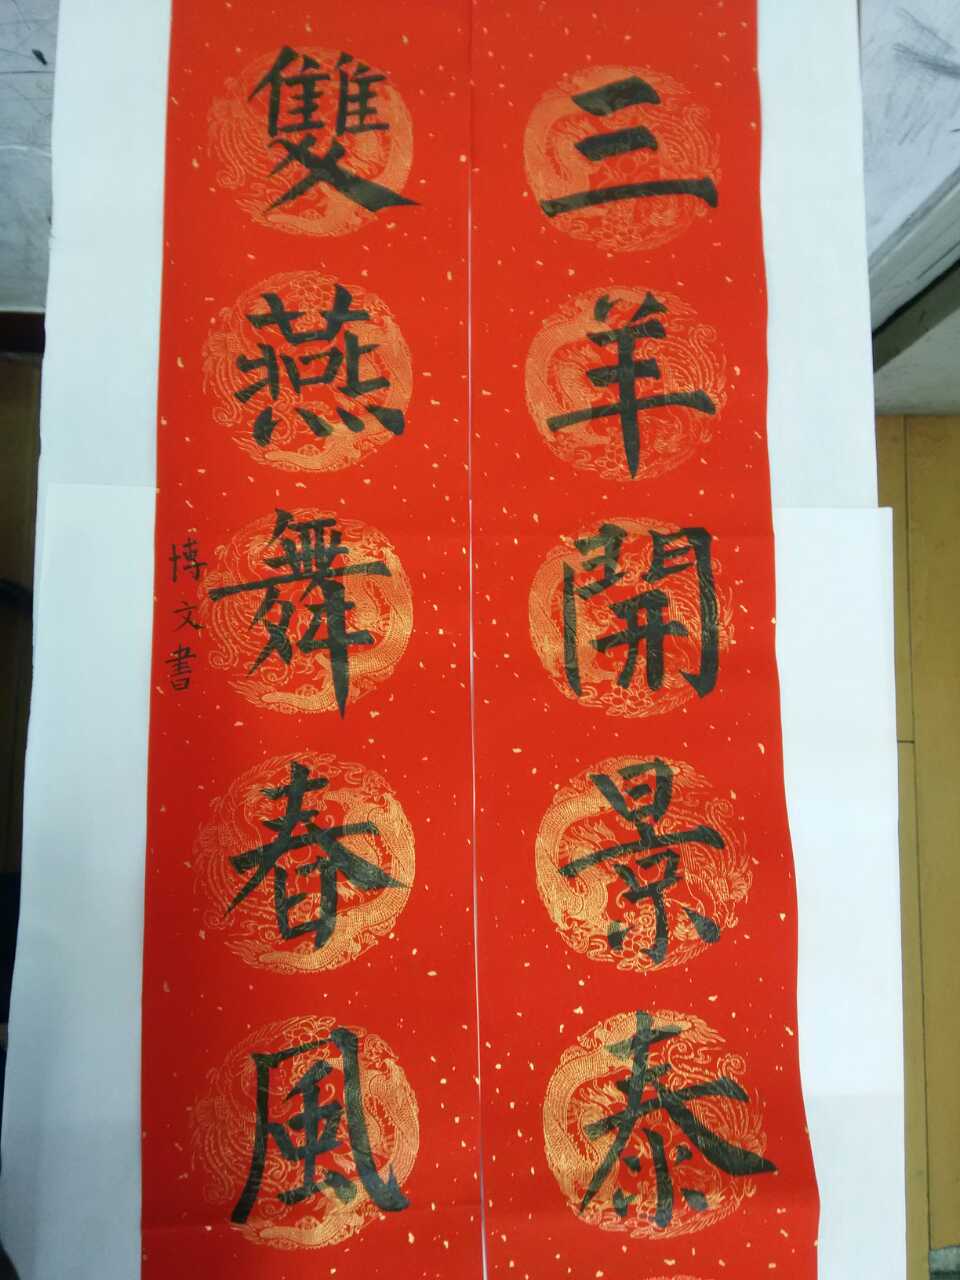 三羊開景泰
雙燕舞春風
博文書